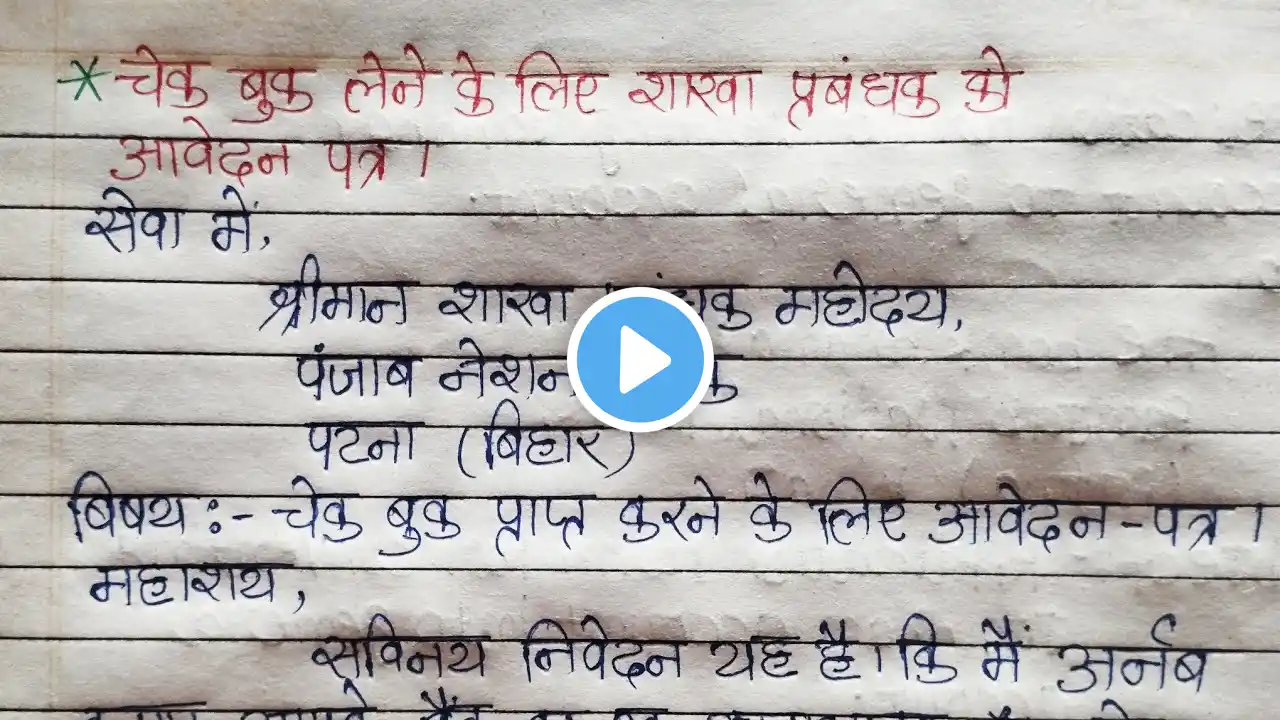 * चेक बुक लेने के लिए शाखा प्रबंधक को
आवेदन पत्र।
सेवा में,
श्रीमान शाखा महोदय,
पंजाब
पटना (बिहार)
बिषय :- चेक बुक प्राप्त करने के लिए आवेदन-पत्र।
महाशय,
सविनय निवेदन यह है। कि मैं अर्नब